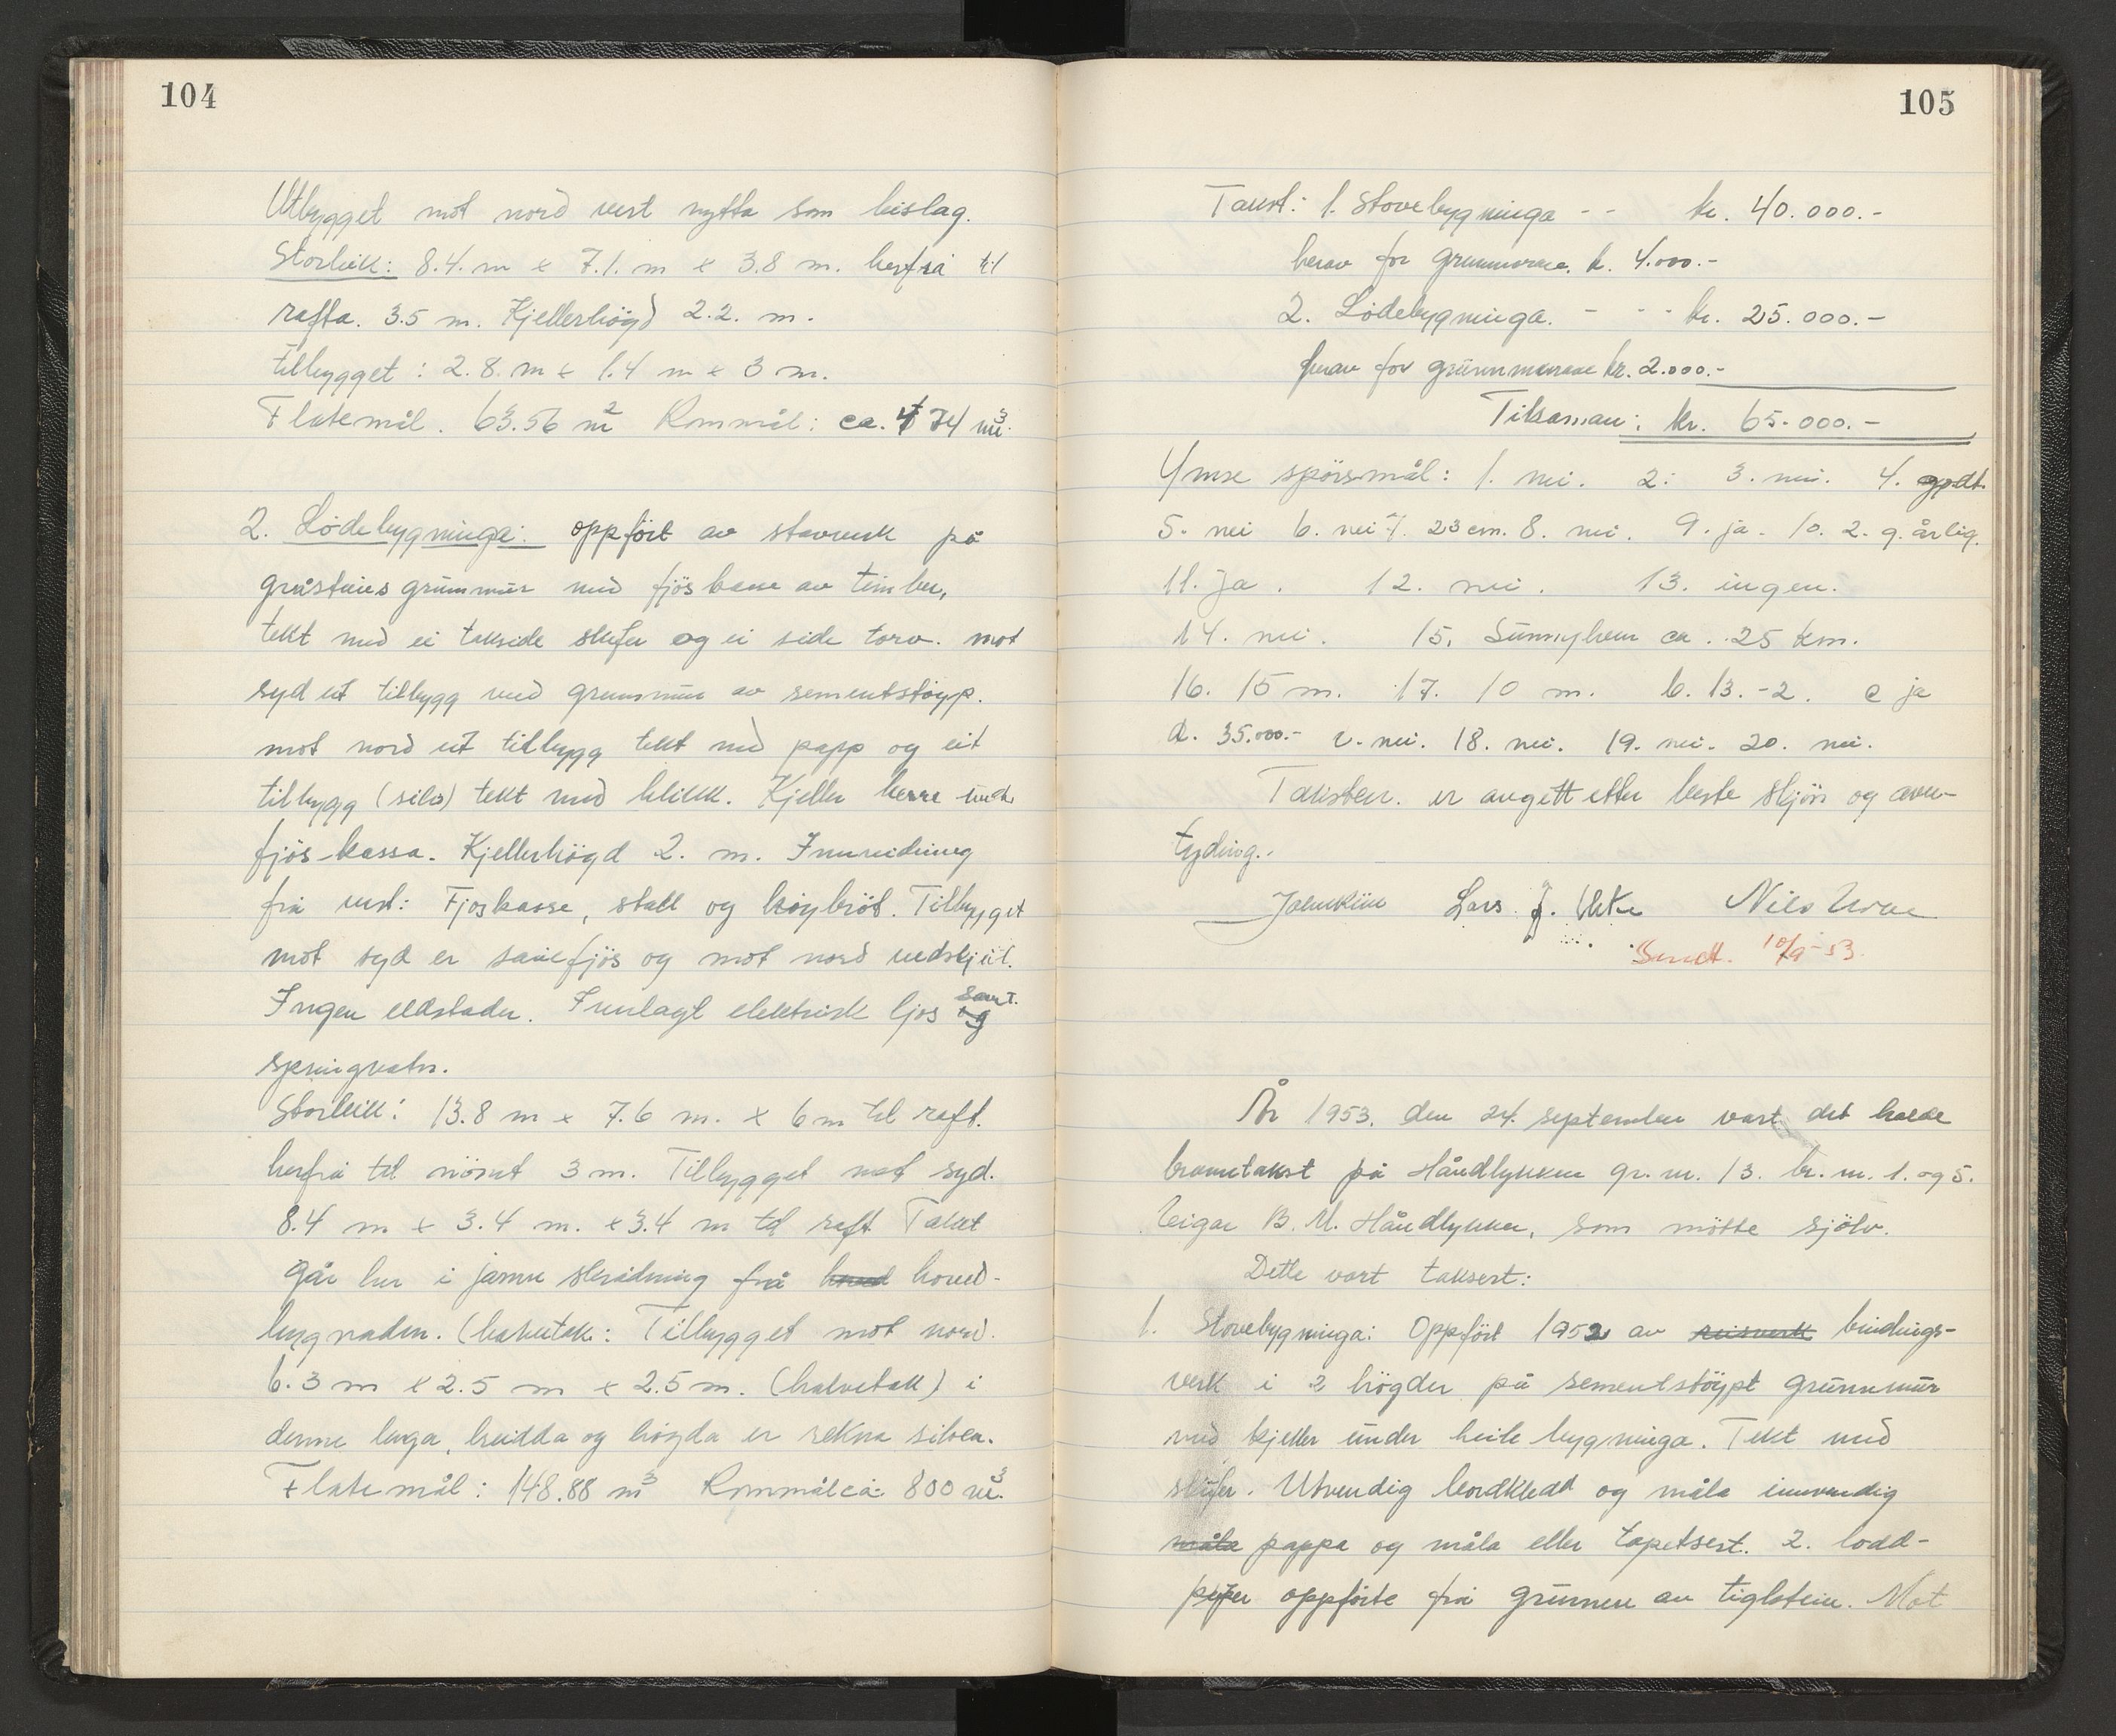 104
Utbygget mot nord vest nytta som bislag.
Storleik: 8.4. m x 7.1. m x 3.8 m. herfrå til
rafta. 3.5 m. Kjellerhögd 2.2. m.
tilbygget: 2.8. m x 1.4 m x 3 m.
Flatemål. 63.56 m² Rommål: ca. 474 m³.
2. Lödebygninga: oppfört av stavverk på
gråsteins grunnmur med fjöskasse av timber,
tekt med ei takside skifer og ei side torv. mot
syd et tilbygg med grunnmur av sementstöyp.
mot nord et tilbygg tekt med papp og eit
tilbygg (silo) tekt med blikk. Kjeller berre under
fjös-kassa. Kjellerhögd 2. m. Innreidning
frå vest: Fjoskasse, stall og höybröt. Tilbygget
mot syd er sauefjös og mot nord vedskjul.
Ingen eldstader. Innlagt elektrisk ljos og samt.
springvatn.
Storleik: 13.8 m x 7.6 m. x 6 m til raft.
herfrå til mönet 3 m. Tilbygget mot syd.
8.4 m x 3.4 m. x 3.4 m til raft Taket
går her i jamn skrådning frå hoved hoved-
bygnaden. (halvtak: Tilbygget mot nord.
6.3 m x 2.5 m x 2.5 m. (halvetak) i
denne lenga, breidda og högda er rekna siloen.
Flatemål: 148.88 m³ Rommål ca: 800 m³.
105
Takst: 1. Stovebygninga - - kr. 40.000.-
herav for grunnmurane. k. 4.000.-
2. Lödebygninga. - - - kr. 25.000.-
herav for grunnmurane kr. 2.000.-
Tilsaman: kr. 65.000.-
Ymse spörsmål: 1. nei. 2: 3. nei. 4. godt.
5. nei 6. nei 7. 23 cm. 8. nei. 9. ja. 10. 2. g. årlig.
11. ja. 12. nei. 13. ingen.
14. nei. 15. Sunnyhem ca. 25 km.
16. 15 m. 17. 10 m. b. 13.-2. c ja
d. 35.000.- e. nei. 18. nei. 19. nei. 20. nei.
Taksten. er avgett etter beste skjön og over-
tyding.
Lars J. Nils
Sendt. 10/9-53.
År 1953. den 24. september vart det halde
branntakst på Håndlykken gr. nr. 13. br. nr. 1. og 5.
Eigar B. M. Håndlykken, som mötte sjölv.
Dette vart taksert:
1. Stovebygninga: Oppfört 1952 av reisverk bindings-
verk i 2 högder på sementstöypt grunnmur
med kjeller under heile bygninga. Tekt med
skifer. Utvendig bordkledd og måla innvendig
måla pappa og måla eller tapetsert. 2. lodd-
piper oppförte frå grunnen av tiglstein. Mot